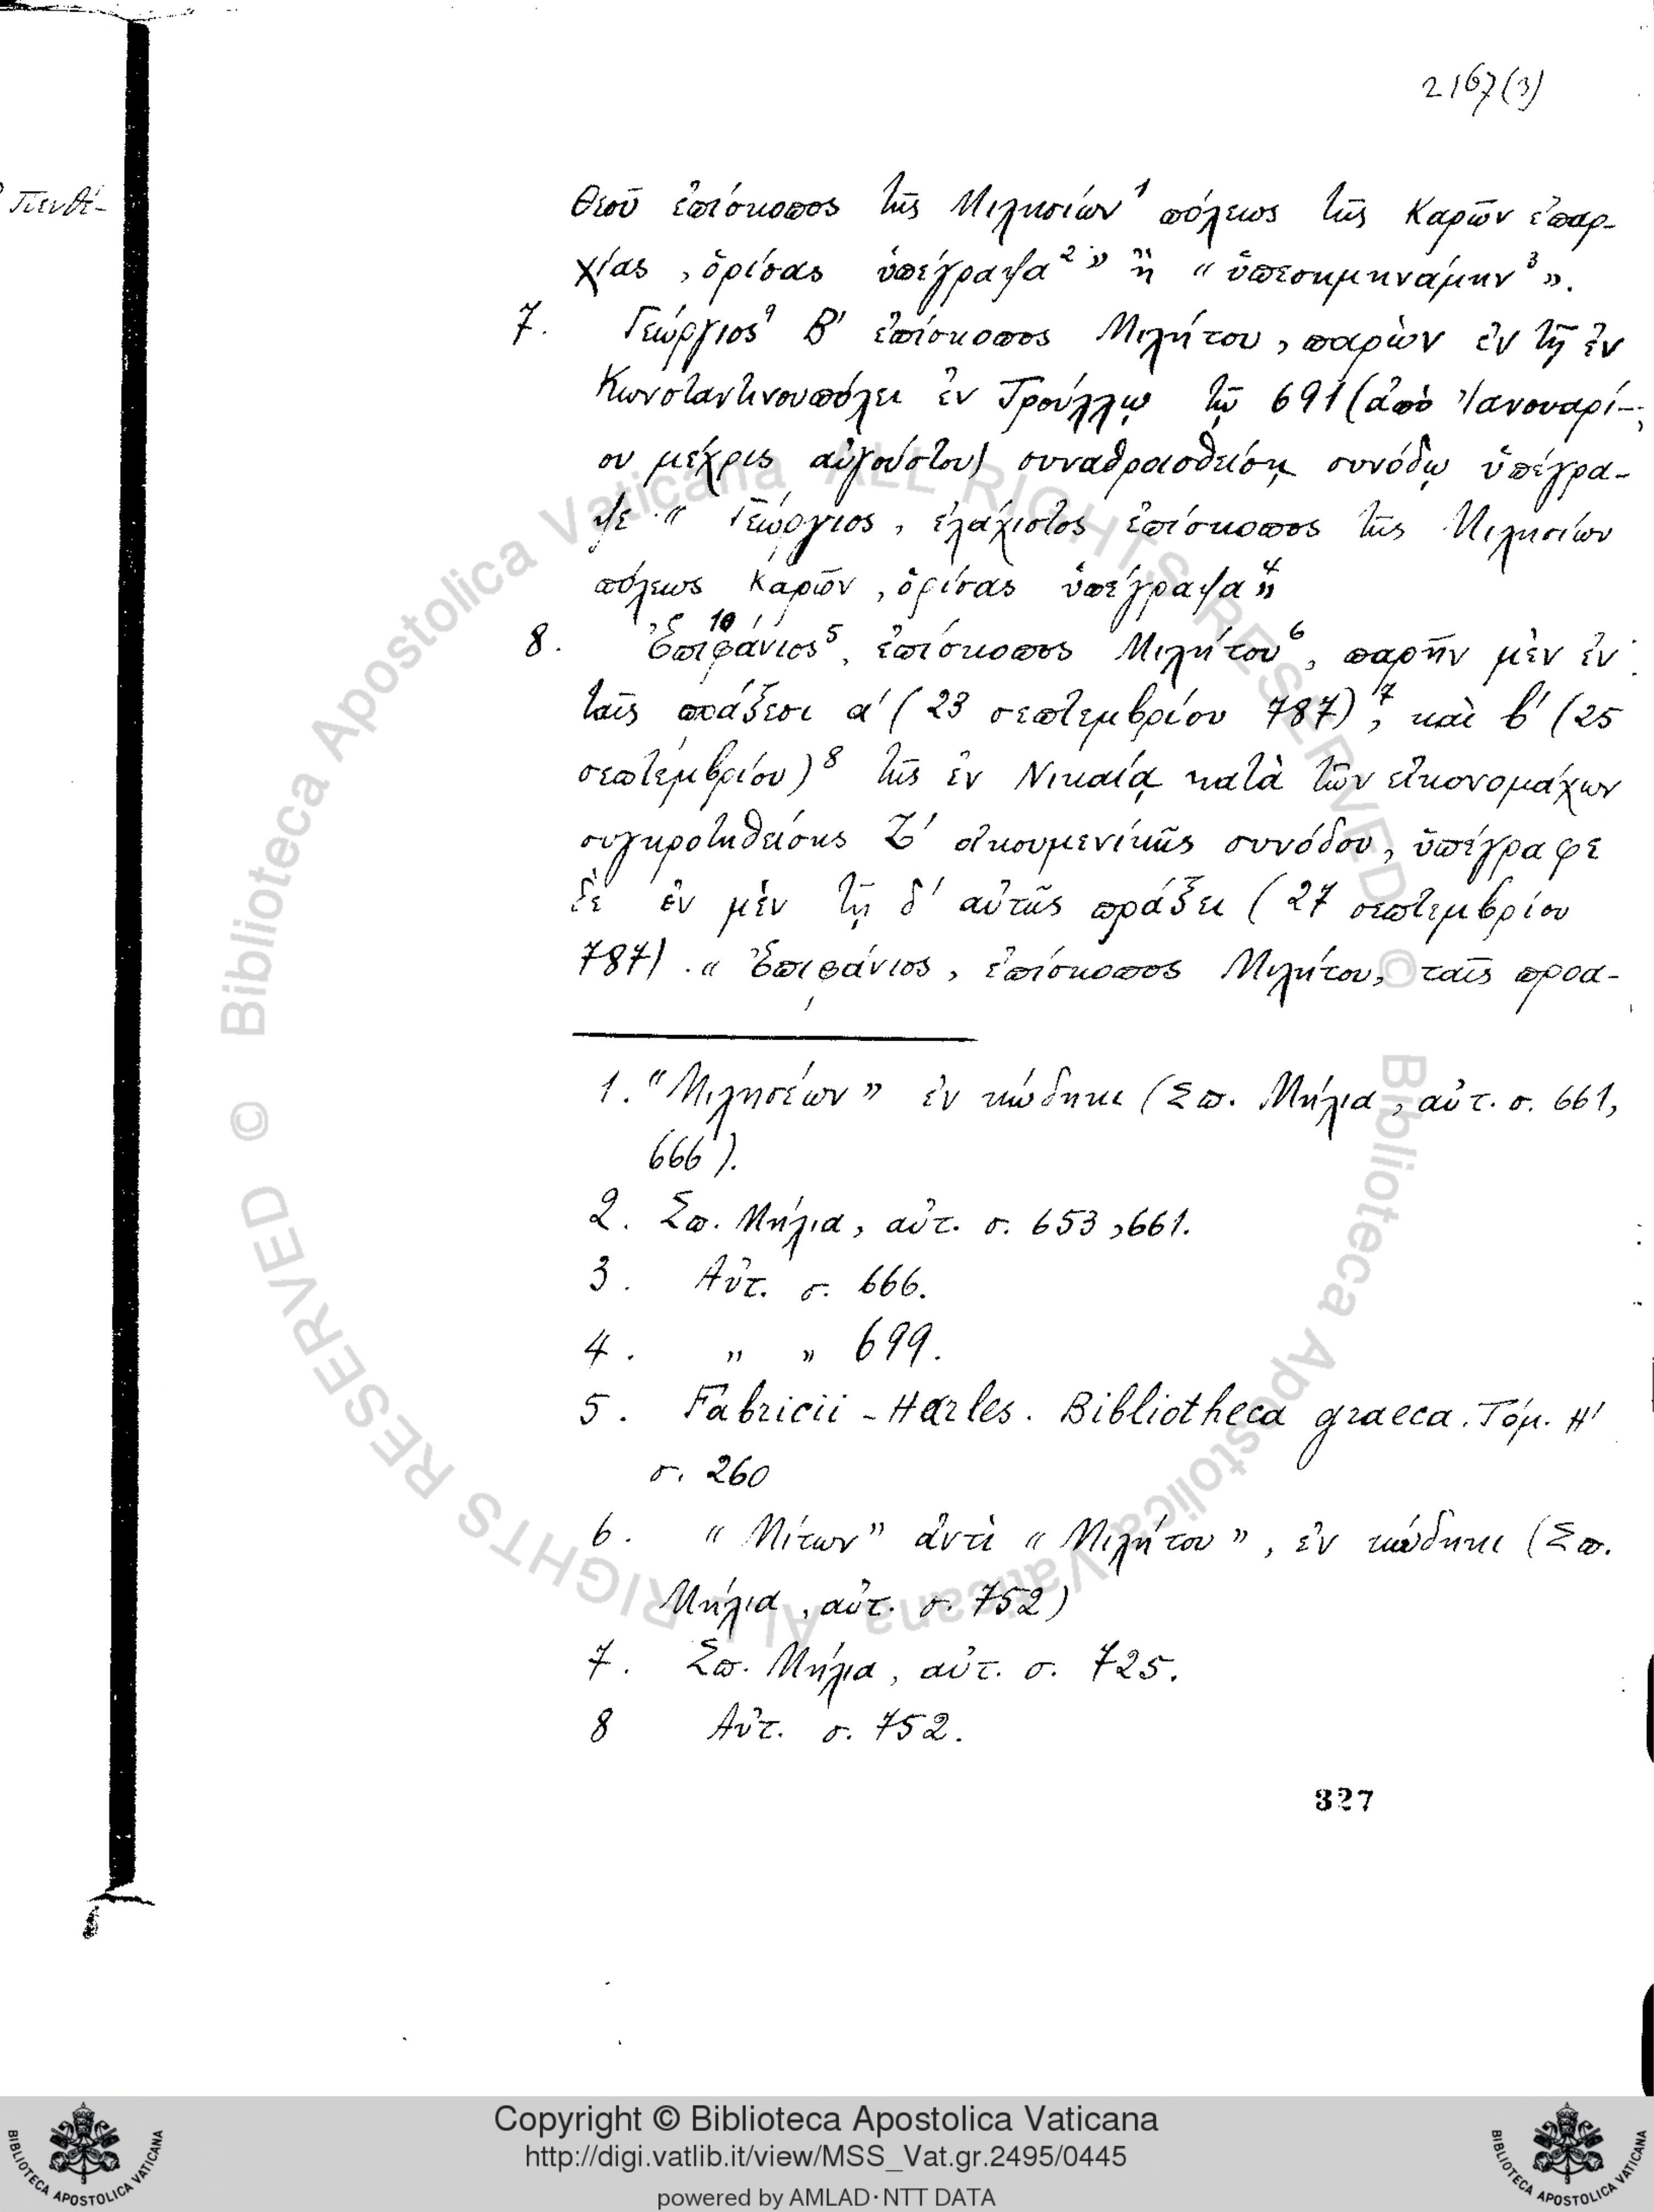 2167(3)
Πενθέ-
Θεοῦ ἐπίσκοπος τῆς Μιλησίων¹ πόλεως τῆς Καρῶν ἐπαρ-
χίας, ὁρίσας ὑπέγραψα²» ἢ «ὑπεσημηνάμην³».
7. Γεώργιος⁹ Β' ἐπίσκοπος Μιλήτου, παρὼν ἐν τῇ ἐν
Κωνσταντινουπόλει ἐν Τρούλλῳ τῷ 691 (ἀπὸ Ἰανουαρί-
ου μέχρις αὐγούστου) συναθροισθείσῃ συνόδῳ ὑπέγρα-
ψε «Γεώργιος, ἐλάχιστος ἐπίσκοπος τῆς Μιλησίων
πόλεως Καρῶν, ὁρίσας ὑπέγραψα⁴»
8. Ἐπιφάνιος¹⁰ ⁵, ἐπίσκοπος Μιλήτου⁶, παρῆν μὲν ἐν
ταῖς πράξεσι α' (23 σεπτεμβρίου 787)⁷, καὶ β' (25
σεπτεμβρίου)⁸ τῆς ἐν Νικαίᾳ κατὰ τῶν εἰκονομάχων
συγκροτηθείσης Ζ' οἰκουμενικῆς συνόδου, ὑπέγραφε
δὲ ἐν μὲν τῇ δ' αὐτῆς πράξει (27 σεπτεμβρίου
787) .« Ἐπιφάνιος, ἐπίσκοπος Μιλήτου, ταῖς προα-
1. "Μιλησέων" ἐν κώδηκι (Σπ. Μήλια, αὐτ. σ. 661,
666).
2. Σπ. Μήλια, αὐτ. σ. 653, 661.
3. Αὐτ. σ. 666.
4. " " 699.
5. Fabricii - Harles. Bibliotheca graeca. Τόμ. Η'
σ. 260
6. "Μίτων" ἀντὶ "Μιλήτου", ἐν κώδηκι (Σπ.
Μήλια, αὐτ. σ. 752)
7. Σπ. Μήλια, αὐτ. σ. 725.
8 Αὐτ. σ. 752.
327
© Biblioteca Apostolica Vaticana ALL RIGHTS RESERVED © Biblioteca Apostolica Vaticana ALL RIGHTS RESERVED
Copyright © Biblioteca Apostolica Vaticana
http://digi.vatlib.it/view/MSS_Vat.gr.2495/0445
powered by AMLAD·NTT DATA
BIBLIOTECA APOSTOLICA VATICANA
BIBLIOTECA APOSTOLICA VATICANA